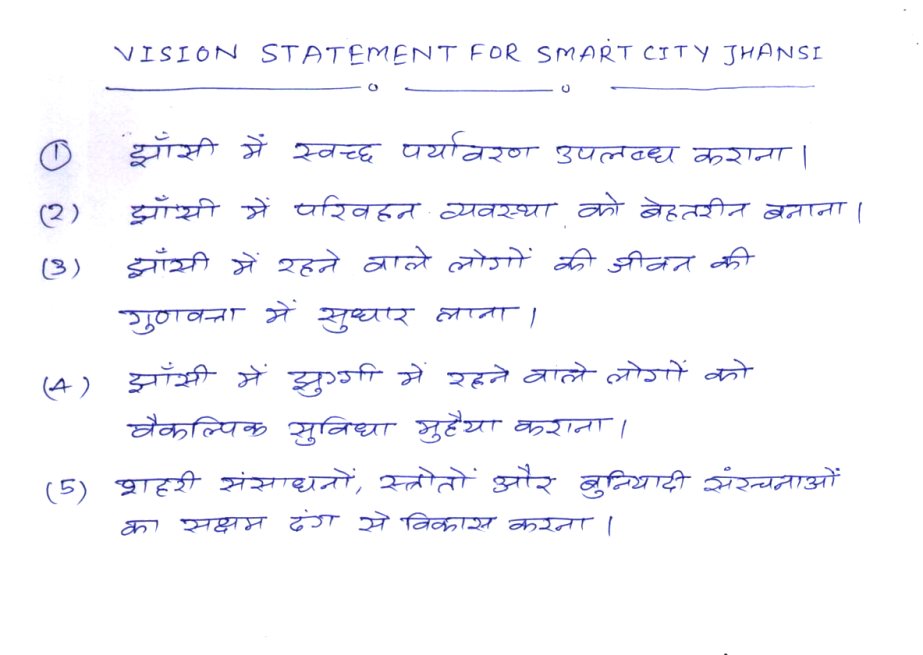 VISION STATEMENT FOR SMART CITY JHANSI
① झाँसी में स्वच्छ पर्यावरण उपलब्ध कराना।
(2) झाँसी में परिवहन व्यवस्था को बेहतरीन बनाना।
(3) झाँसी में रहने वाले लोगों की जीवन की
गुणवत्ता में सुधार लाना।
(4) झाँसी में झुग्गी में रहने वाले लोगों को
वैकल्पिक सुविधा मुहैया कराना।
(5) शहरी संसाधनों, स्त्रोतों और बुनियादी संरचनाओं
का सक्षम ढंग से विकास करना।